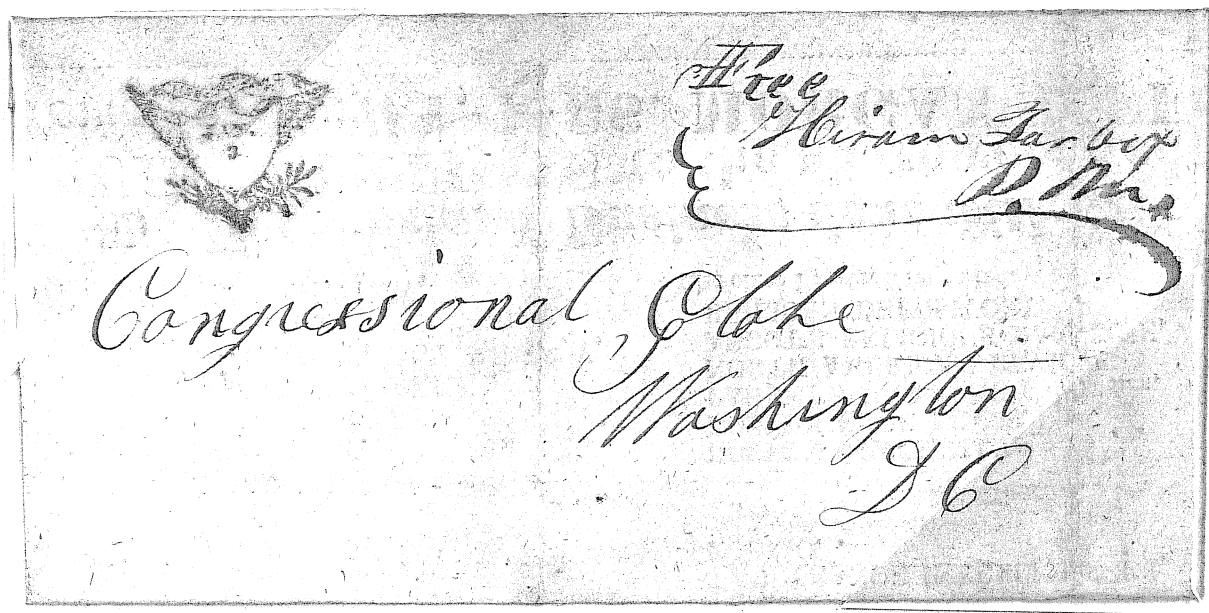 Free
Hiram Tarbox
P.M.
Congressional Globe
Washington
D C